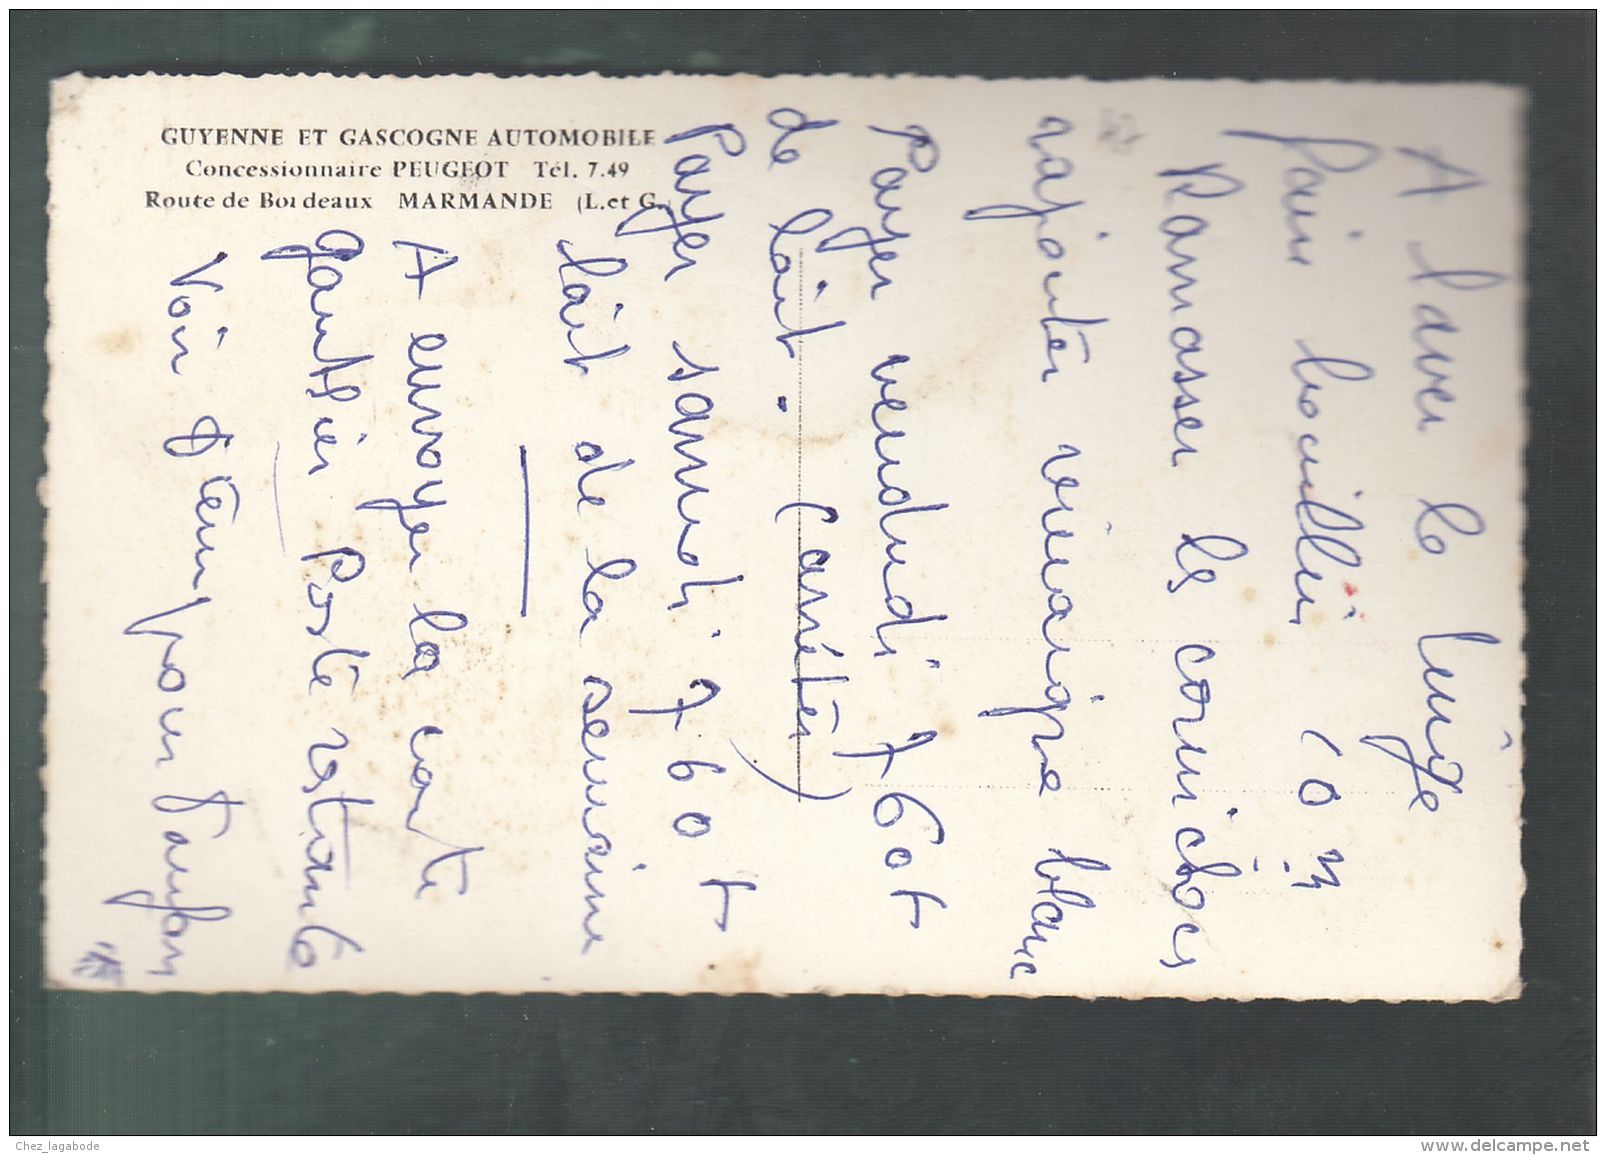 GUYENNE ET GASCOGNE AUTOMOBILE
Concessionnaire PEUGEOT Tél. 7.49
Route de Bordeaux MARMANDE (L. et G.)
A laver le linge
faire bouillir 10 m
Ramasser les cornichons
rajouter vinaigre blanc
Payer vendredi 7,60 f
de lait. (arrêter)
Payer samedi 7,60 f
lait de la semaine
A envoyer la carte
Gauthier Poste restante
Voir pour
Chez_lagabode
www.delcampe.net